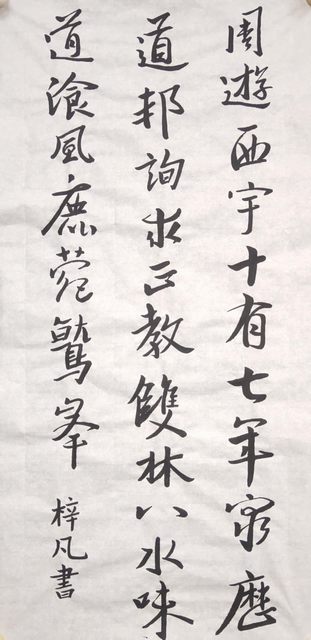 周遊西宇十有七年窮歷
道邦詢求正教雙林八水味
道飡風鹿菀鷲峯
梓凡書